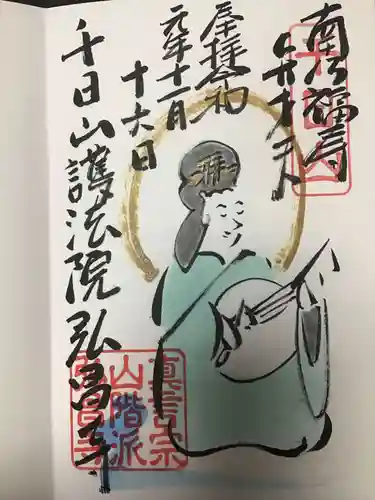 南無福寿
弁才天
奉拝令和
元年十一月
十六日
千日山護法院弘昌寺
真言宗
山階派
弘昌寺